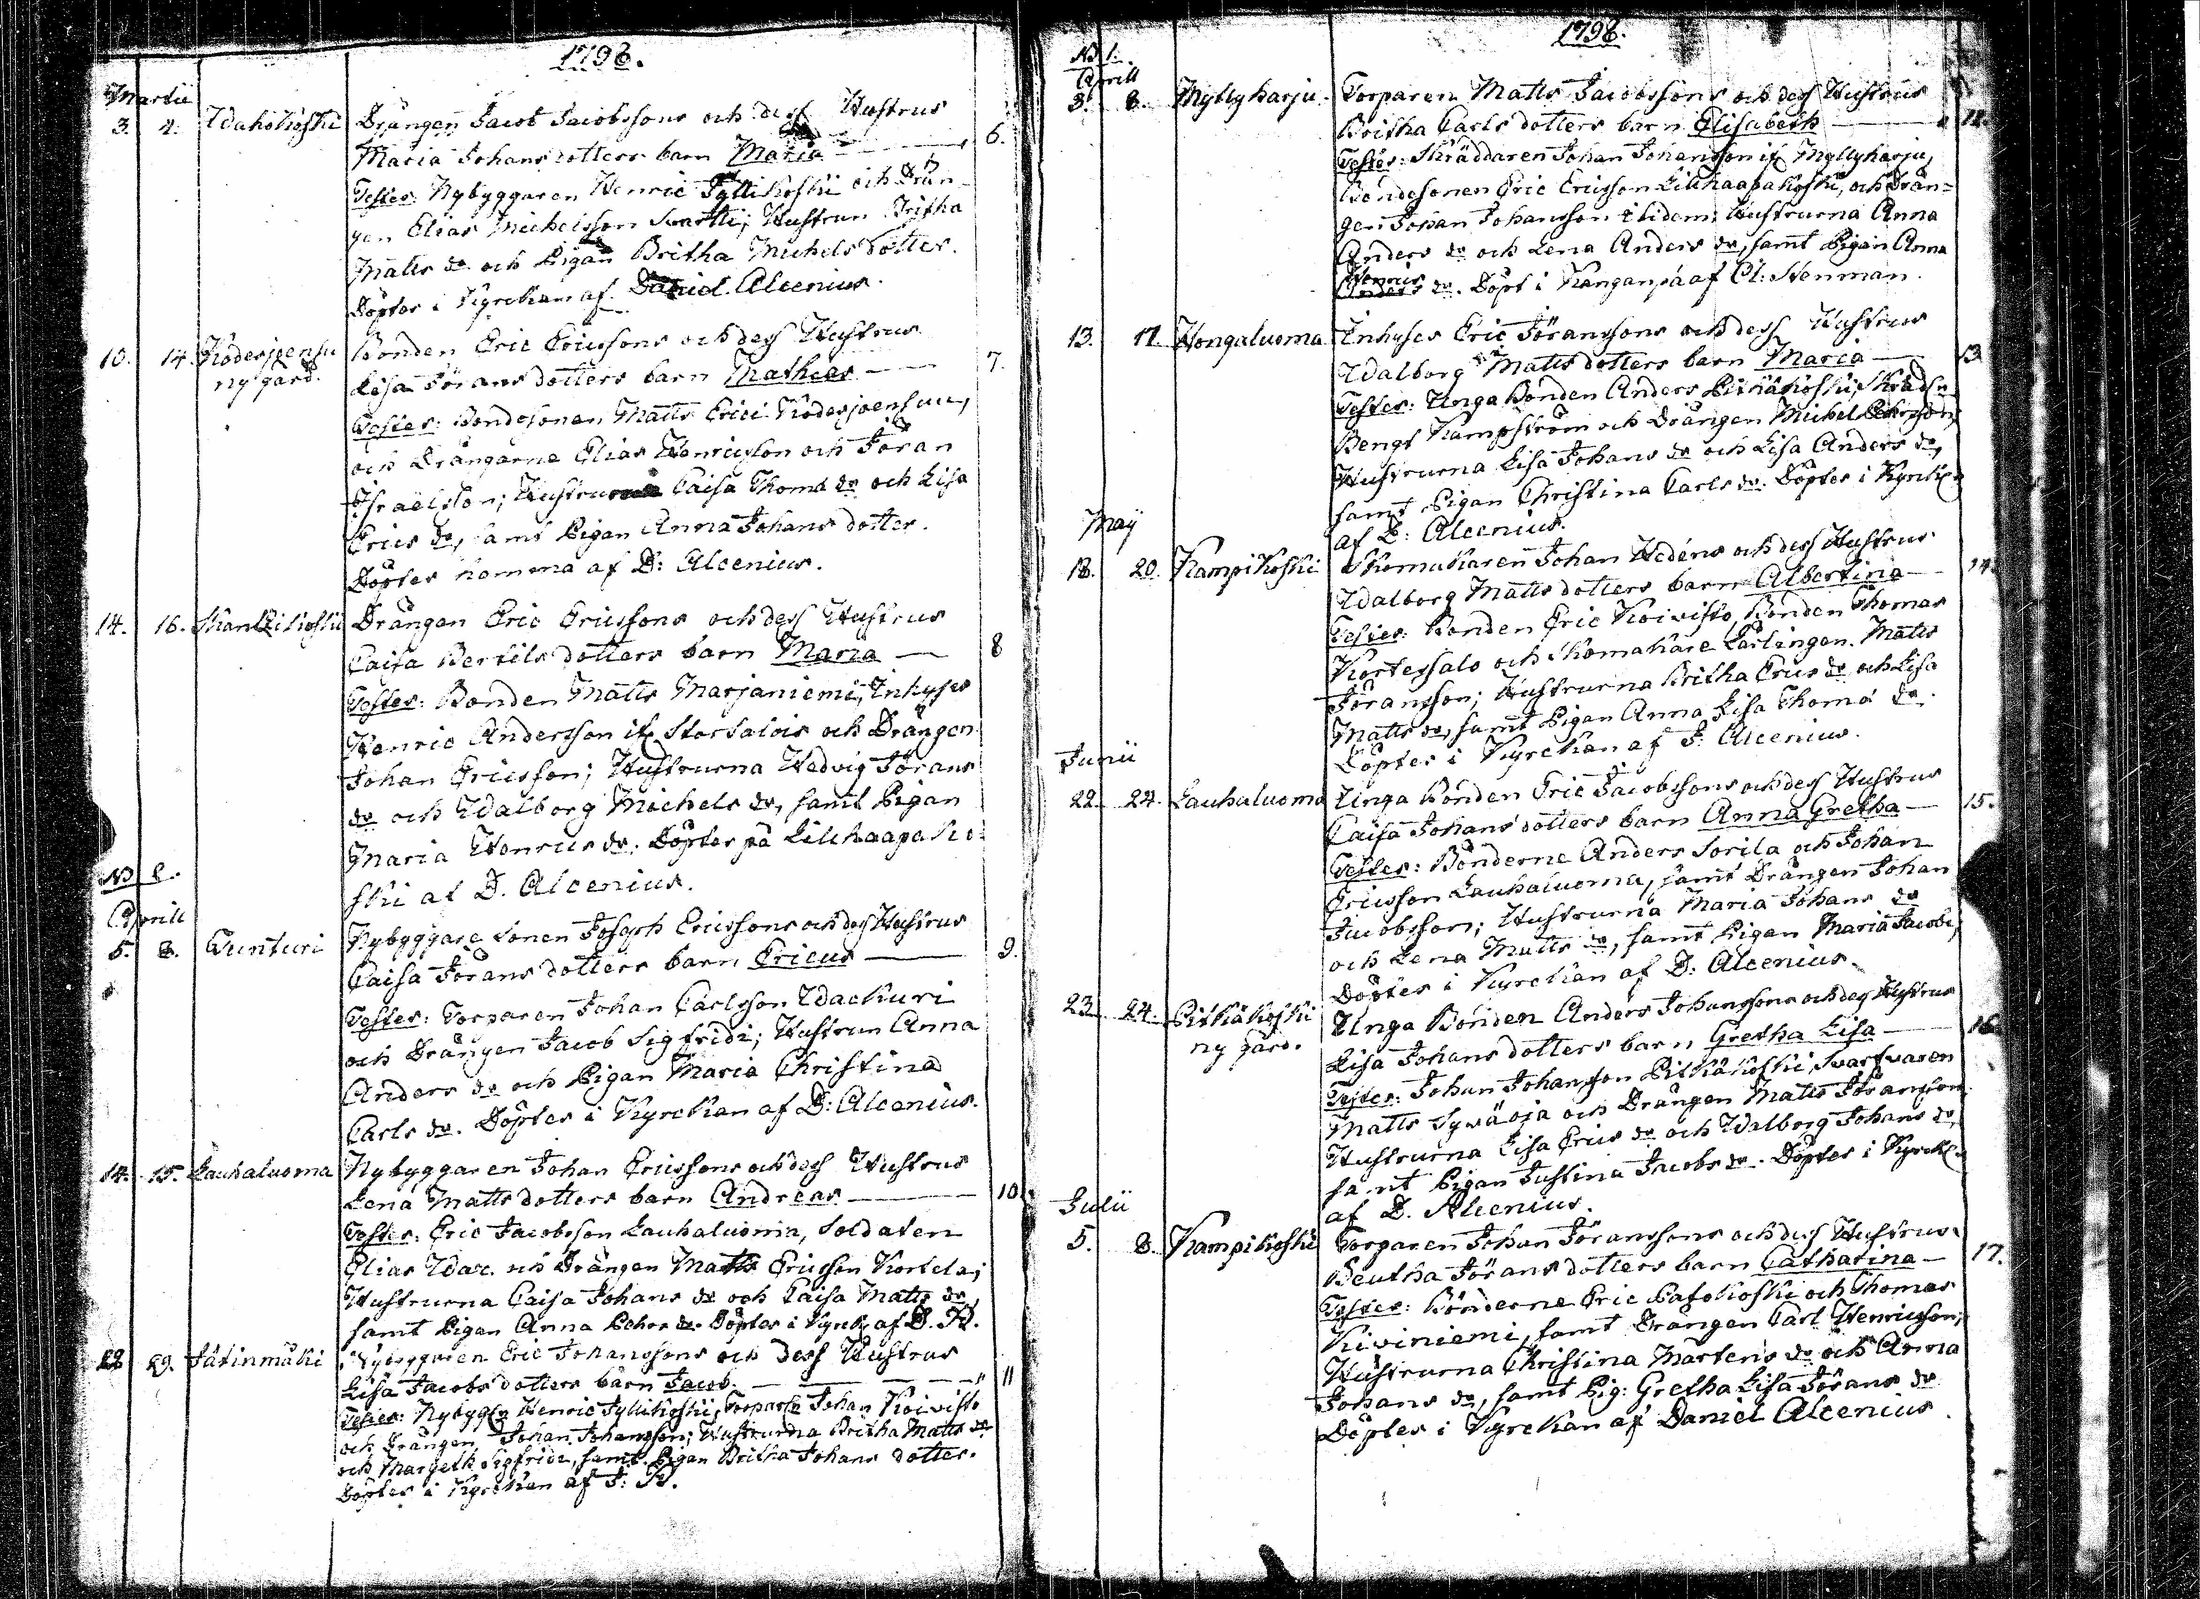 1798.
Martii
3. 4. Wahokoski Drängen Jacob Jacobssons och dess Hustrus
Maria Johans dotters barn Maria — 6.
Testes: Nybyggaren Henric Jyllikoski och Drän-
gen Elias Michelsson Svartti; Hustrun Britha
Matts dr och Pigan Britha Michels dotter.
Döptes i Kyrckan af Daniel Alcenius.
10. 14. Ködesjoensu Bonden Eric Ericssons och dess Hustrus
ny gård. Lisa Jörans dotters barn Mathias — 7.
Testes: Bondesonen Matts Erici Ködesjoensuu,
och Drängarne Elias Henricsson och Jöran
Israelsson; Hustrurna Caisa Thoma dr och Lisa
Erics dr, samt Pigan Anna Johans dotter.
Döptes hemma af D: Alcenius.
14. 16. Drängen Eric Ericssons och dess Hustrus
Caisa Bertils dotters barn Maria — 8
Testes: Bonden Matts Marjaniemi, Inhyses
Henric Andersson och Drängen
Johan Ericsson; Hustrurna Hedvig Jörans
dr och Walborg Michels dr, samt Pigan
Maria Henrics dr. Döptes på Lillhaapako-
ski af D. Alcenius.
Aprill
5. 8. Tunturi Nybyggare sonen Joseph Ericssons och dess Hustrus
Caisa Jörans dotters barn Ericus — 9.
Testes: Torparen Johan Carlsson Wackuri
och Drängen Jacob Sigfridi; Hustrun Anna
Anders dr och Pigan Maria Christina
Carls dr. Döptes i Kyrckan af D: Alcenius.
14. 15. Lauhaluoma Nybyggaren Johan Ericssons och dess Hustrus
Lena Matts dotters barn Andreas — 10
Testes: Eric Jacobsson Lauhaluoma, Soldaten
Elias och Drängen Matts Ericsson Kortela;
Hustrurna Caisa Johans dr och Caisa Matts dr,
samt Pigan Anna Pehrs dr. Döptes i Kyrck. af D. A.
22 29. Jätinmäki Nybyggaren Eric Johanssons och dess Hustrus
Lisa Jacobs dotters barn Jacob. — 11
Testes: Henric Jyllikoski, Johan Koivisto
och Drängen Johan Johansson; Hustrurna Britha Matts dr
och Margeth Sigfrids, samt Pigan Britha Johans dotter.
Döptes i Kyrckan af
1798.
Aprill
3. 8. Myllyharju. Torparen Matts Jacobssons och dess Hustrus
Britha Carls dotters barn Elisabeth — 12.
Testes: Skräddaren Johan Johansson Myllyharju,
Bondesonen Eric Ericsson Lillhaapakoski, och Drän-
gen Johan Johansson ibidem; Hustrurna Anna
Anders dr och Lena Anders dr, samt Pigan Anna
Henrics dr. Döpt i Kanganpä af Cl: Stenman.
13. 17. Hongaluoma Inhyses Eric Jöranssons och dess Hustrus
Walborg Matts dotters barn Maria — 13
Testes: Unga Bonden Anders Pitkäkoski,
Bengt Kampström och Drängen Michel Pehrsson;
Hustrurna Lisa Johans dr och Lisa Anders dr,
samt Pigan Christina Carls dr. Döptes i Kyrck.
af D: Alcenius.
Maij
18. 20. Kampikoski Skomakaren Johan Hedéns och dess Hustrus
Walborg Matts dotters barn Albertina — 14.
Testes: Bonden Eric Koivisto, Bonden Thomas
Kortessalo och Skomakare Lärlingen Matts
Jöransson; Hustrurna Britha Erics dr och Lisa
Matts dr, samt Pigan Anna Lisa Thoma dr.
Döptes i Kyrckan af J. Alcenius.
Junii
22. 24. Lauhaluoma Unga Bonden Eric Jacobssons och dess Hustrus
Caisa Johans dotters barn Anna Gretha — 15.
Testes: Bönderne Anders Sorila och Johan
Ericsson Lauhaluoma, samt Drängen Johan
Jacobsson; Hustrurna Maria Johans dr
och Lena Matts dr, samt Pigan Maria Jacobs,
Döptes i Kyrckan af D: Alcenius.
23. 24. Pitkäkoski Unga Bonden Anders Johanssons och dess Hustrus
ny gård. Lisa Johans dotters barn Gretha Lisa — 16
Testes: Johan Johansson Pitkäkoski, Svarfvaren
Matts Syväoja och Drängen Matts Jöransson
Hustrurna Lisa Erics dr och Walborg Johans dr,
samt Pigan Justina Jacobs dr. Döptes i Kyrck.
af D. Alcenius.
Julii
5. 8. Kampikoski Torparen Johan Jöranssons och dess Hustrus
Beatha Jörans dotters barn Catharina — 17.
Testes: Bönderne Eric Patokoski och Thomas
Kiviniemi, samt Drängen Carl Henricsson;
Hustrurna Christina Mårtens dr och Anna
Johans dr, samt Pig: Gretha Lisa Jörans dr
Döptes i Kyrckan af Daniel Alcenius.